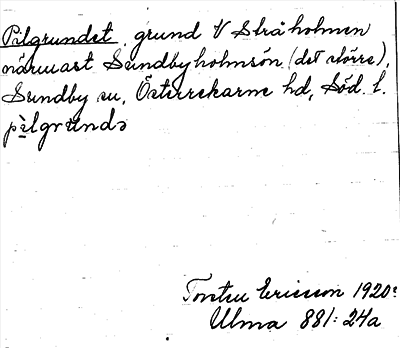 Pilgrundet, grund V Stråholmen
närmast Sundbyholmsön (det större),
Sundby sn, Österrekarne hd, Söd. l.
pìlgrundə
Torsten Ericsson 1920:
Ulma 881:24a